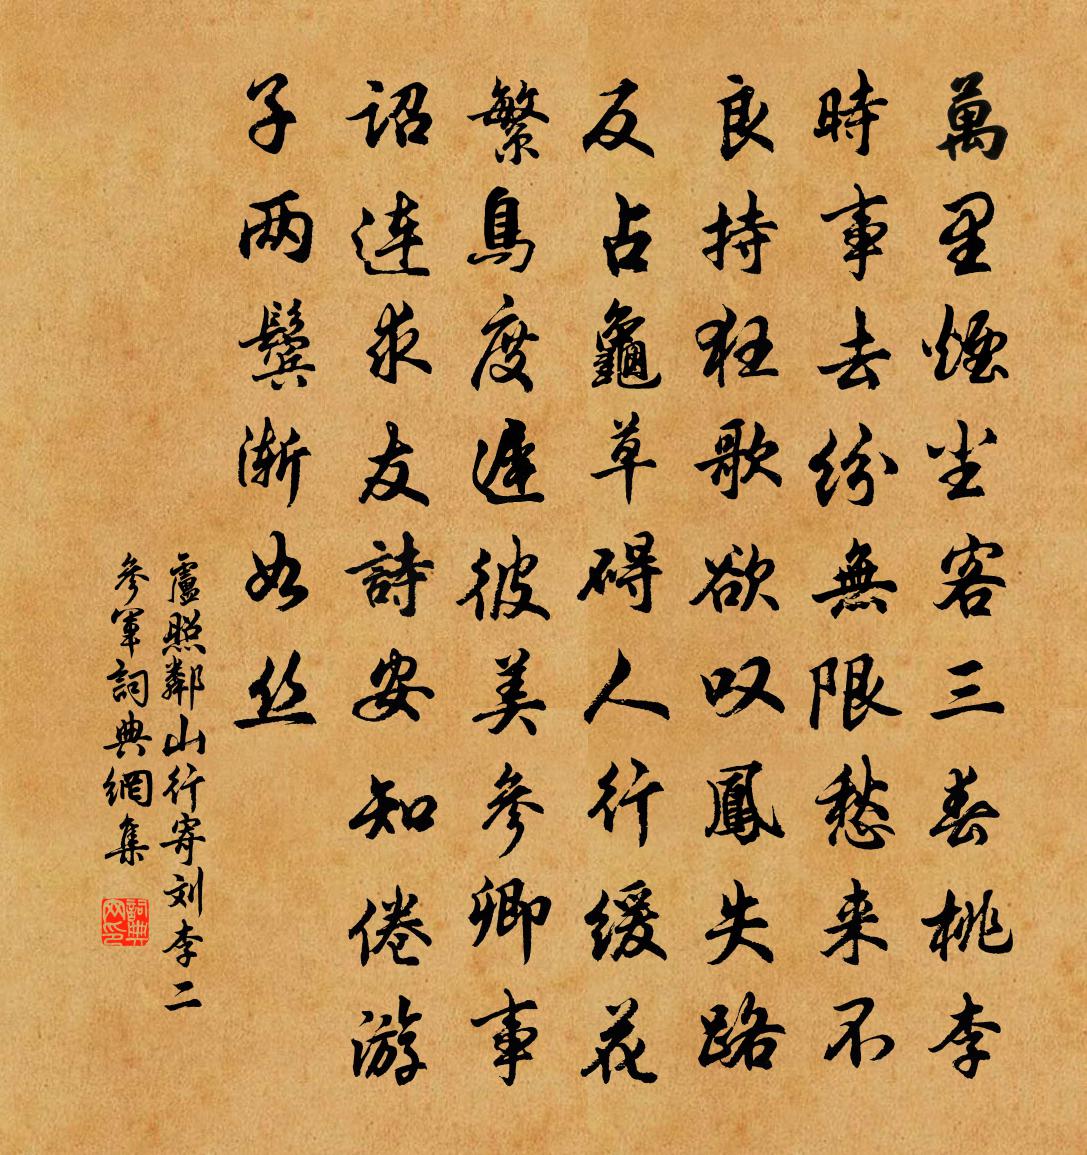 萬里煙尘客三春桃李
時事去纷無限愁来不
良持狂歌欲叹鳳失路
反占龜草碍人行缓花
繁鳥度遲彼美參卿事
诏连求友詩安知倦游
子两鬓渐如丝
盧照鄰山行寄刘李二
參軍詞典網集
詞典网印